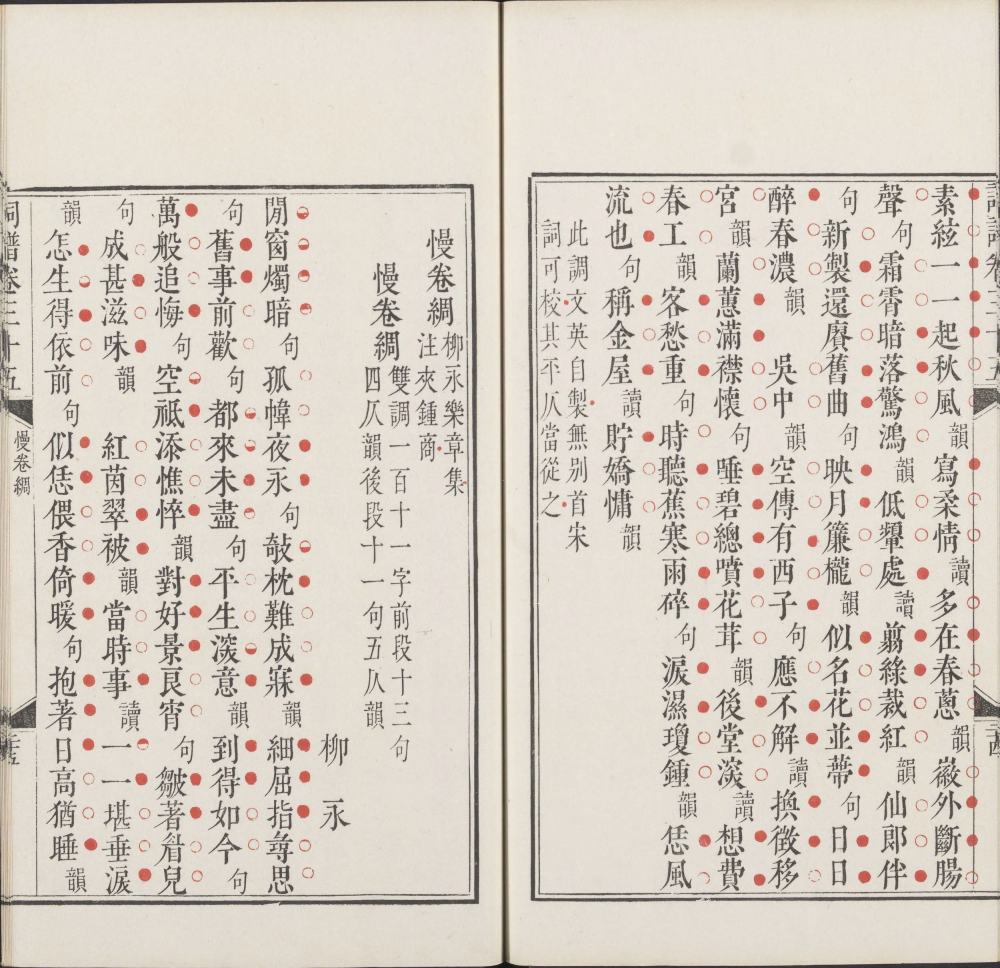 詞譜卷三十五
素絃一一起秋風韻寫柔情讀多在春蔥韻徽外斷腸
聲句霜霄暗落驚鴻韻低顰處讀翦綠裁紅韻仙郎伴
句新製還賡舊曲句映月簾櫳韻似名花並蔕句日日
醉春濃韻 吳中韻空傳有西子句應不解讀換徵移
宮韻蘭蕙滿襟懷句唾碧總噴花茸韻後堂深讀想費
春工韻客愁重句時聽蕉寒雨碎句淚濕瓊鍾韻恁風
流也句稱金屋讀貯嬌慵韻
此調文英自製無別首宋
詞可校其平仄當從之
慢卷綢柳永樂章集
注夾鍾商
慢卷綢雙調一百十一字前段十三句
四仄韻後段十一句五仄韻
柳永
閒窗燭暗句孤幃夜永句攲枕難成寐韻細屈指尋思
句舊事前歡句都來未盡句平生深意韻到得如今句
萬般追悔句空祗添憔悴韻對好景良宵句皺著眉兒
句成甚滋味韻 紅茵翠被韻當時事讀一一堪垂淚
韻怎生得依前句似恁偎香倚暖句抱著日高猶睡韻
詞譜卷三十五
慢卷綢